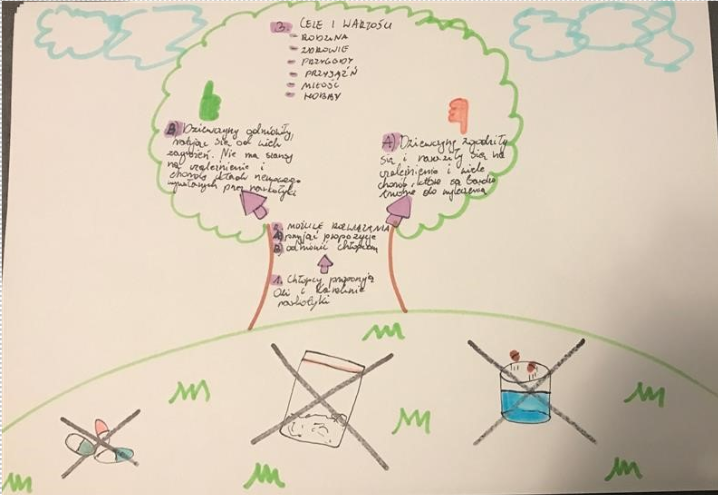 3. CELE I WARTOŚCI
- RODZINA
- ZDROWIE
- PRZYGODY
- PRZYJAŹŃ
- MIŁOŚĆ
- HOBBY
B) Dziewczyny odmówiły,
ratując się od wielu
zagrożeń. Nie ma szansy
na uzależnienie i
chorobę układu nerwowego
wywołanych przez narkotyki
A) Dziewczyny zgodziły
się i naraziły się na
uzależnienie i wiele
chorób, które są bardzo
trudne do wyleczenia
2. MOŻLIWE ROZWIĄZANIA
A) przyjąć propozycje
B) odmówić chłopcom
1. Chłopcy proponują
Oli i Karolinie
narkotyki